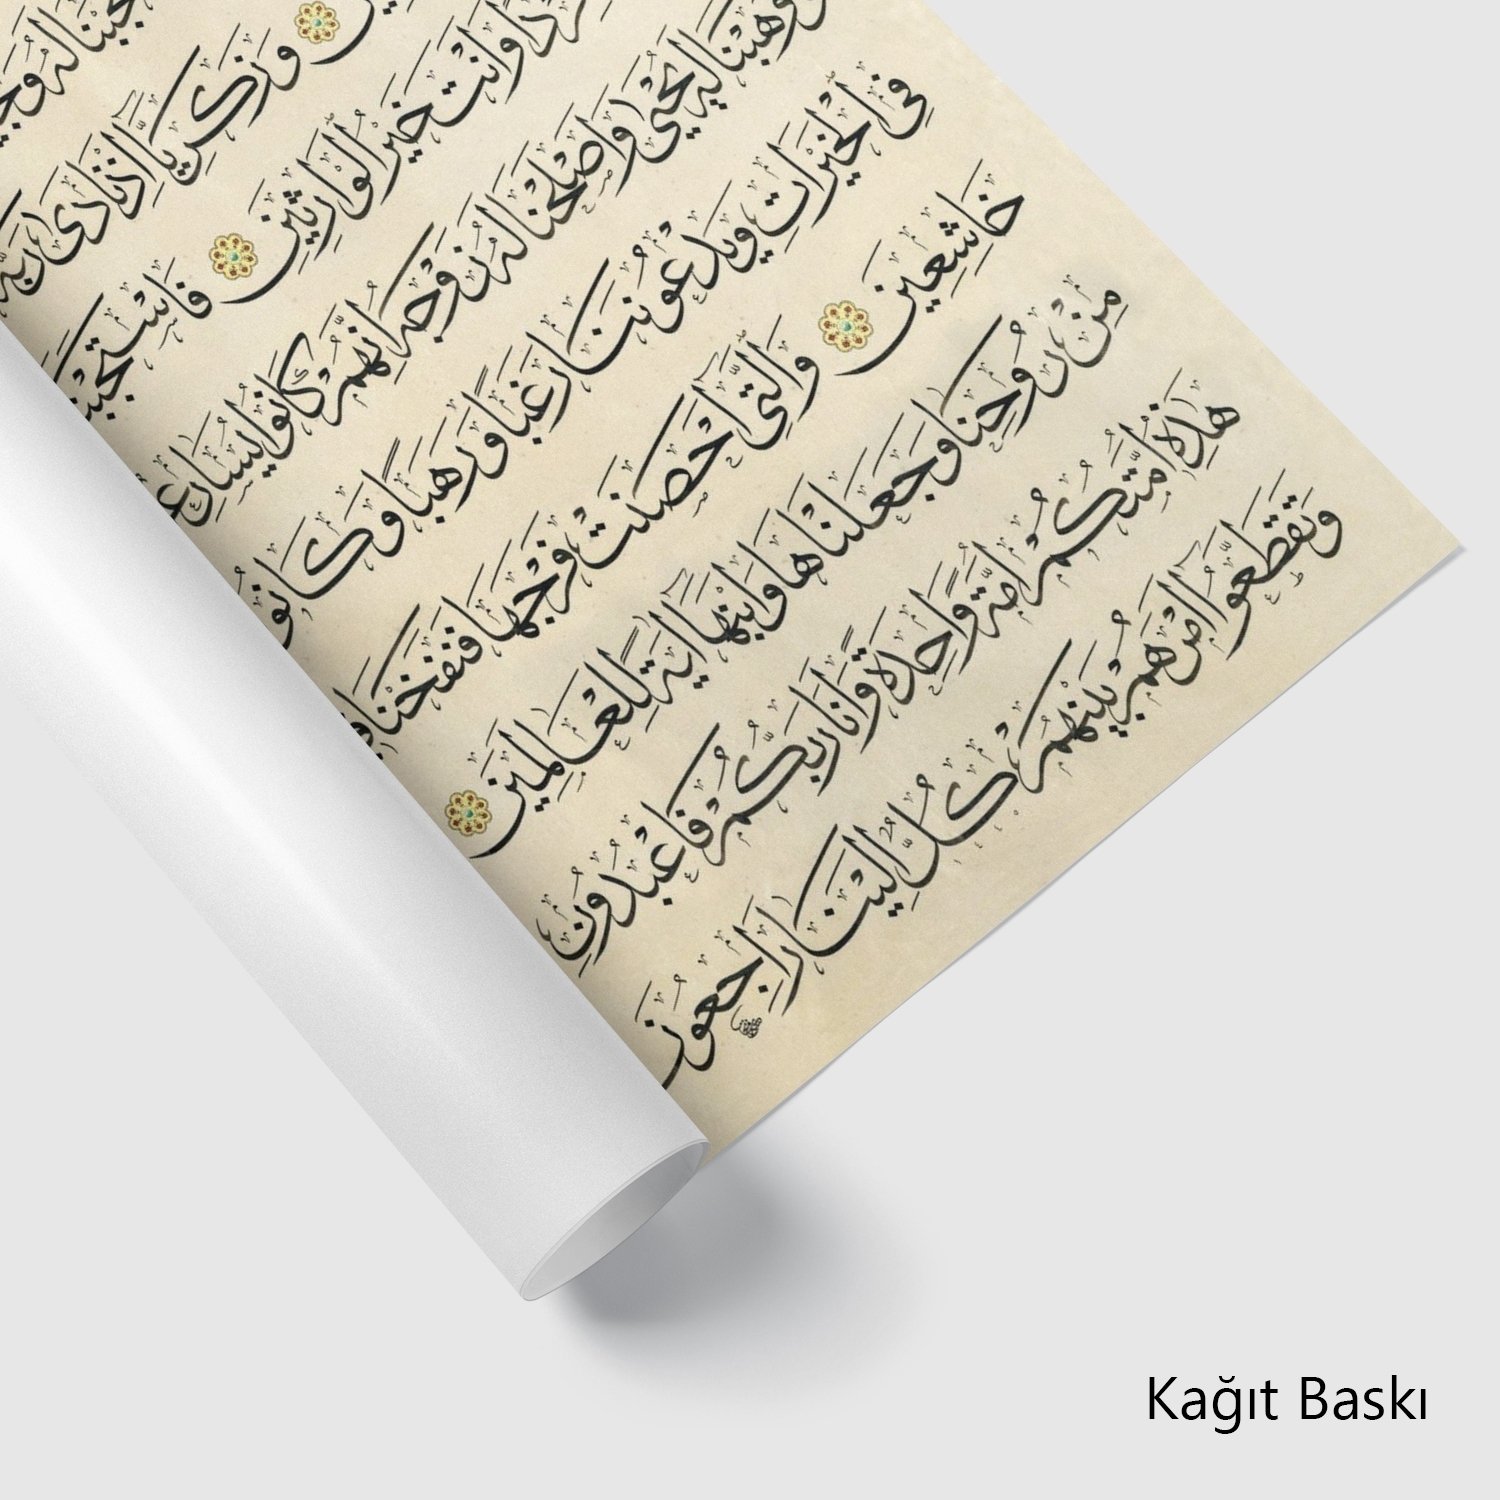 وَزَكَرِيَّٓا اِذْ نَادٰى رَبَّهُ
فَرْدًا وَاَنْتَ خَيْرُ الْوَارِثِينَ فَاسْتَجَبْنَا
وَوَهَبْنَا لَهُ يَحْيٰى وَاَصْلَحْنَا لَهُ زَوْجَهُ اِنَّهُمْ كَانُوا يُسَارِعُونَ
فِي الْخَيْرَاتِ وَيَدْعُونَنَا رَغَبًا وَرَهَبًا وَكَانُوا
خَاشِعِينَ وَالَّتِٓي اَحْصَنَتْ فَرْجَهَا فَنَفَخْنَا
مِنْ رُوحِنَا وَجَعَلْنَاهَا وَابْنَهَٓا اٰيَةً لِلْعَالَمِينَ
هٰذِهِٓ اُمَّتُكُمْ اُمَّةً وَاحِدَةً وَاَنَا رَبُّكُمْ فَاعْبُدُونِ
وَتَقَطَّعُٓوا اَمْرَهُمْ بَيْنَهُمْ كُلٌّ اِلَيْنَا رَاجِعُونَ
Kağıt Baskı